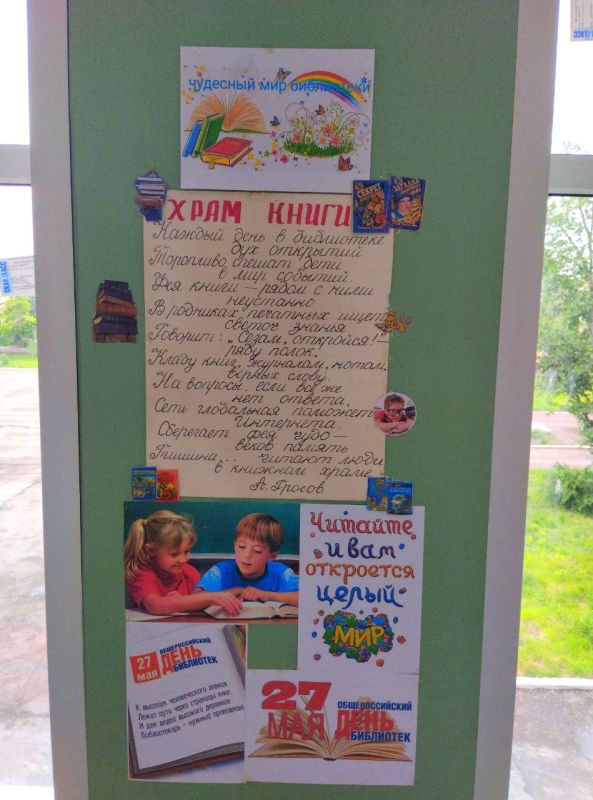 чудесный мир библиотеки
ХРАМ КНИГИ
СЕКРЕТ
ЗАГАДКА
Каждый день в библиотеке
дух открытий
Торопливо спешат дети
в мир событий.
Фея книги – рядом с ними
неустанно
В родниках печатных ищет
светоч знанья
Говорит: „Сезам, откройся!–
ряду полок,
Кладу книг, журналам, нотам,
верных слову
На вопросы, если всё же
нет ответа,
Сеть глобальная поможет
Интернета.
Сберегает фея чудо –
веков память
Тишина... Читают люди
в книжном храме
А. Гросов
Читайте
и вам
откроется
целый
МИР
27
мая
ОБЩЕРОССИЙСКИЙ
ДЕНЬ
БИБЛИОТЕК
К высотам человеческого знания
Лежат пути через страницы книг,
И для людей высокого дерзания
Библиотекарь – нужный проводник
27
МАЯ
ОБЩЕРОССИЙСКИЙ
ДЕНЬ
БИБЛИОТЕК